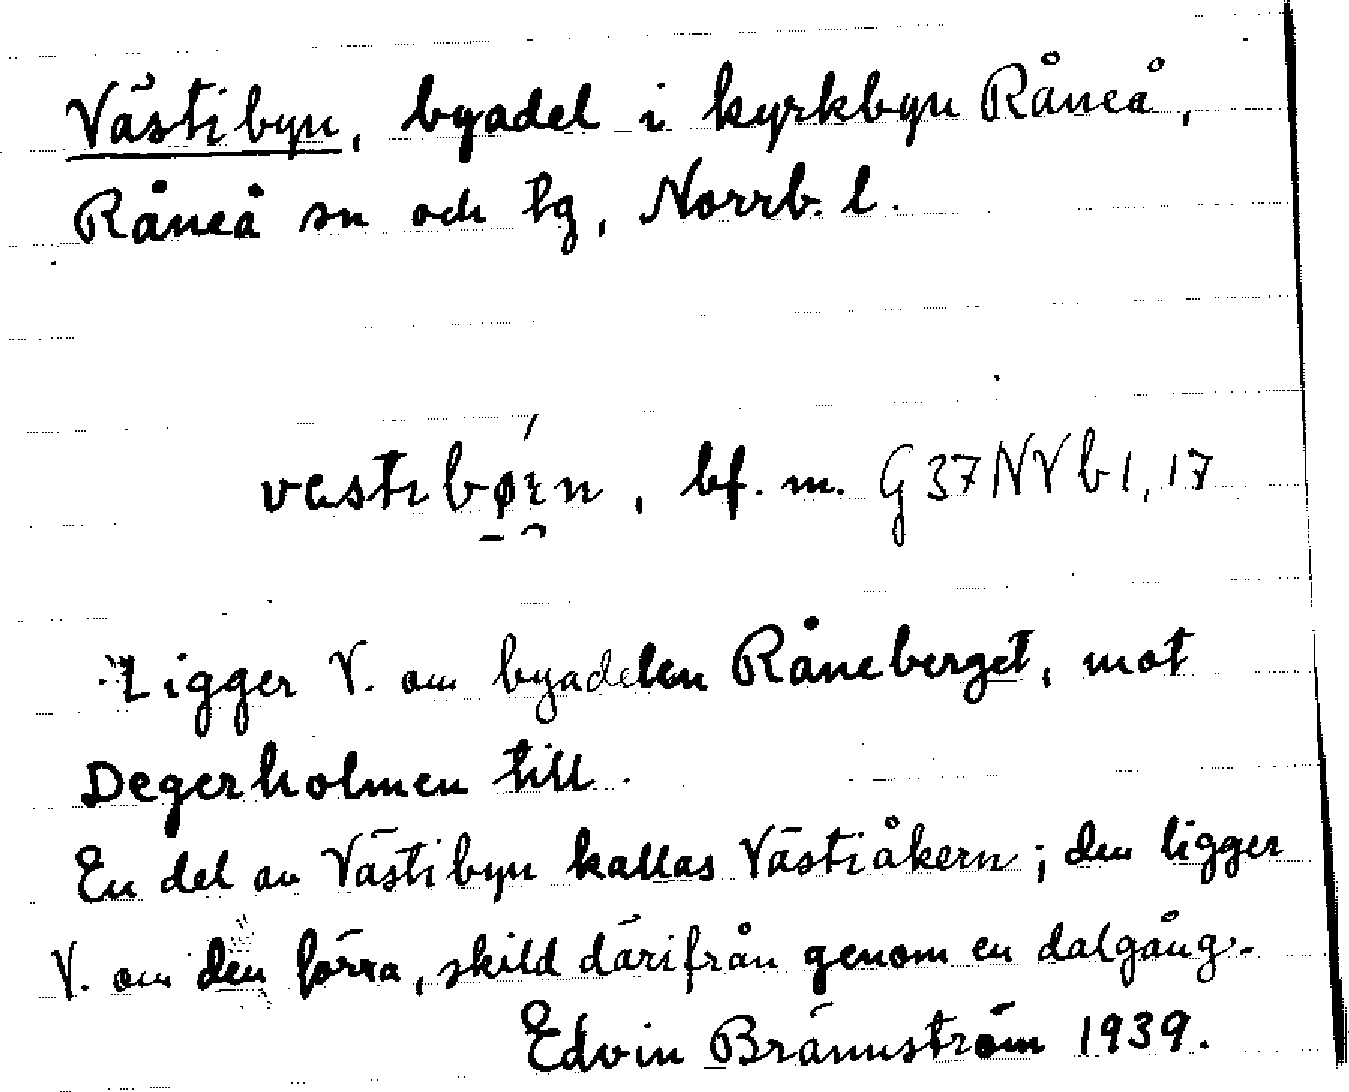 Västibyn, byadel i kyrkbyn Råneå,
Råneå sn och tg, Norrb. l.
vestıbøin, bf. m. G37NVb1,17
Ligger V. om byadelen Råneberget, mot
Degerholmen till.
En del av Västibyn kallas Västiåkern; den ligger
V. om den förra, skild därifrån genom en dalgång.
Edvin Brännström 1939.